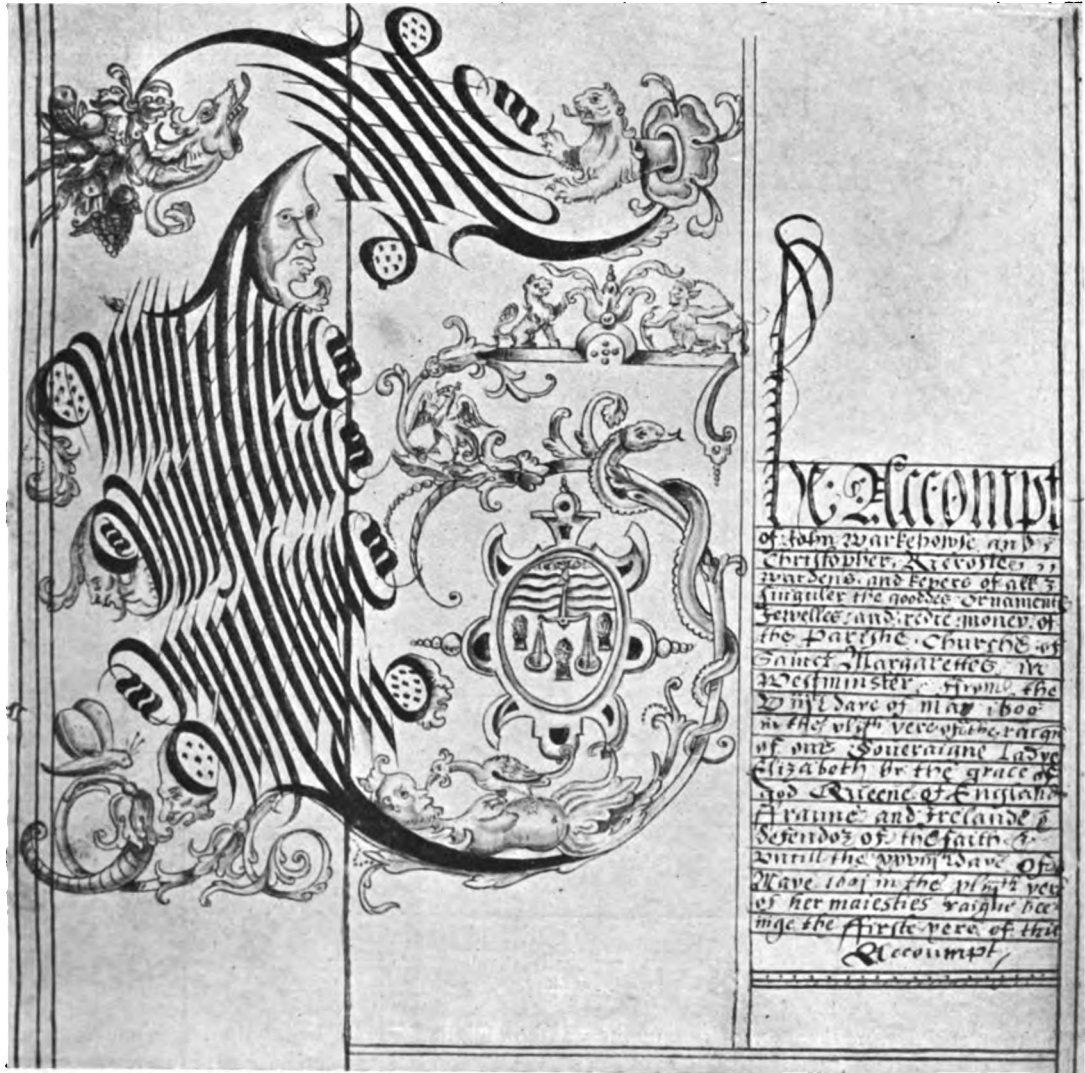 The Accompt
of John Warkehowse and
Christopher
wardens and kepers of all &
singuler the goodes Ornamente
Jewelles and redie money of
the Parishe Churche of
Sainct Margarettes in
Westminster from the
daye of May 1600
in the yere of the raigne
of our Soueraigne Ladye
Elizabeth by the grace of
god Queene of England
Fraunce and Irelande
defendor of the faith &
Vntill the daye Of
Maye 1601 in the yere
of her maiesties raigne bee
inge the ffirste yere of this
Accoumpt